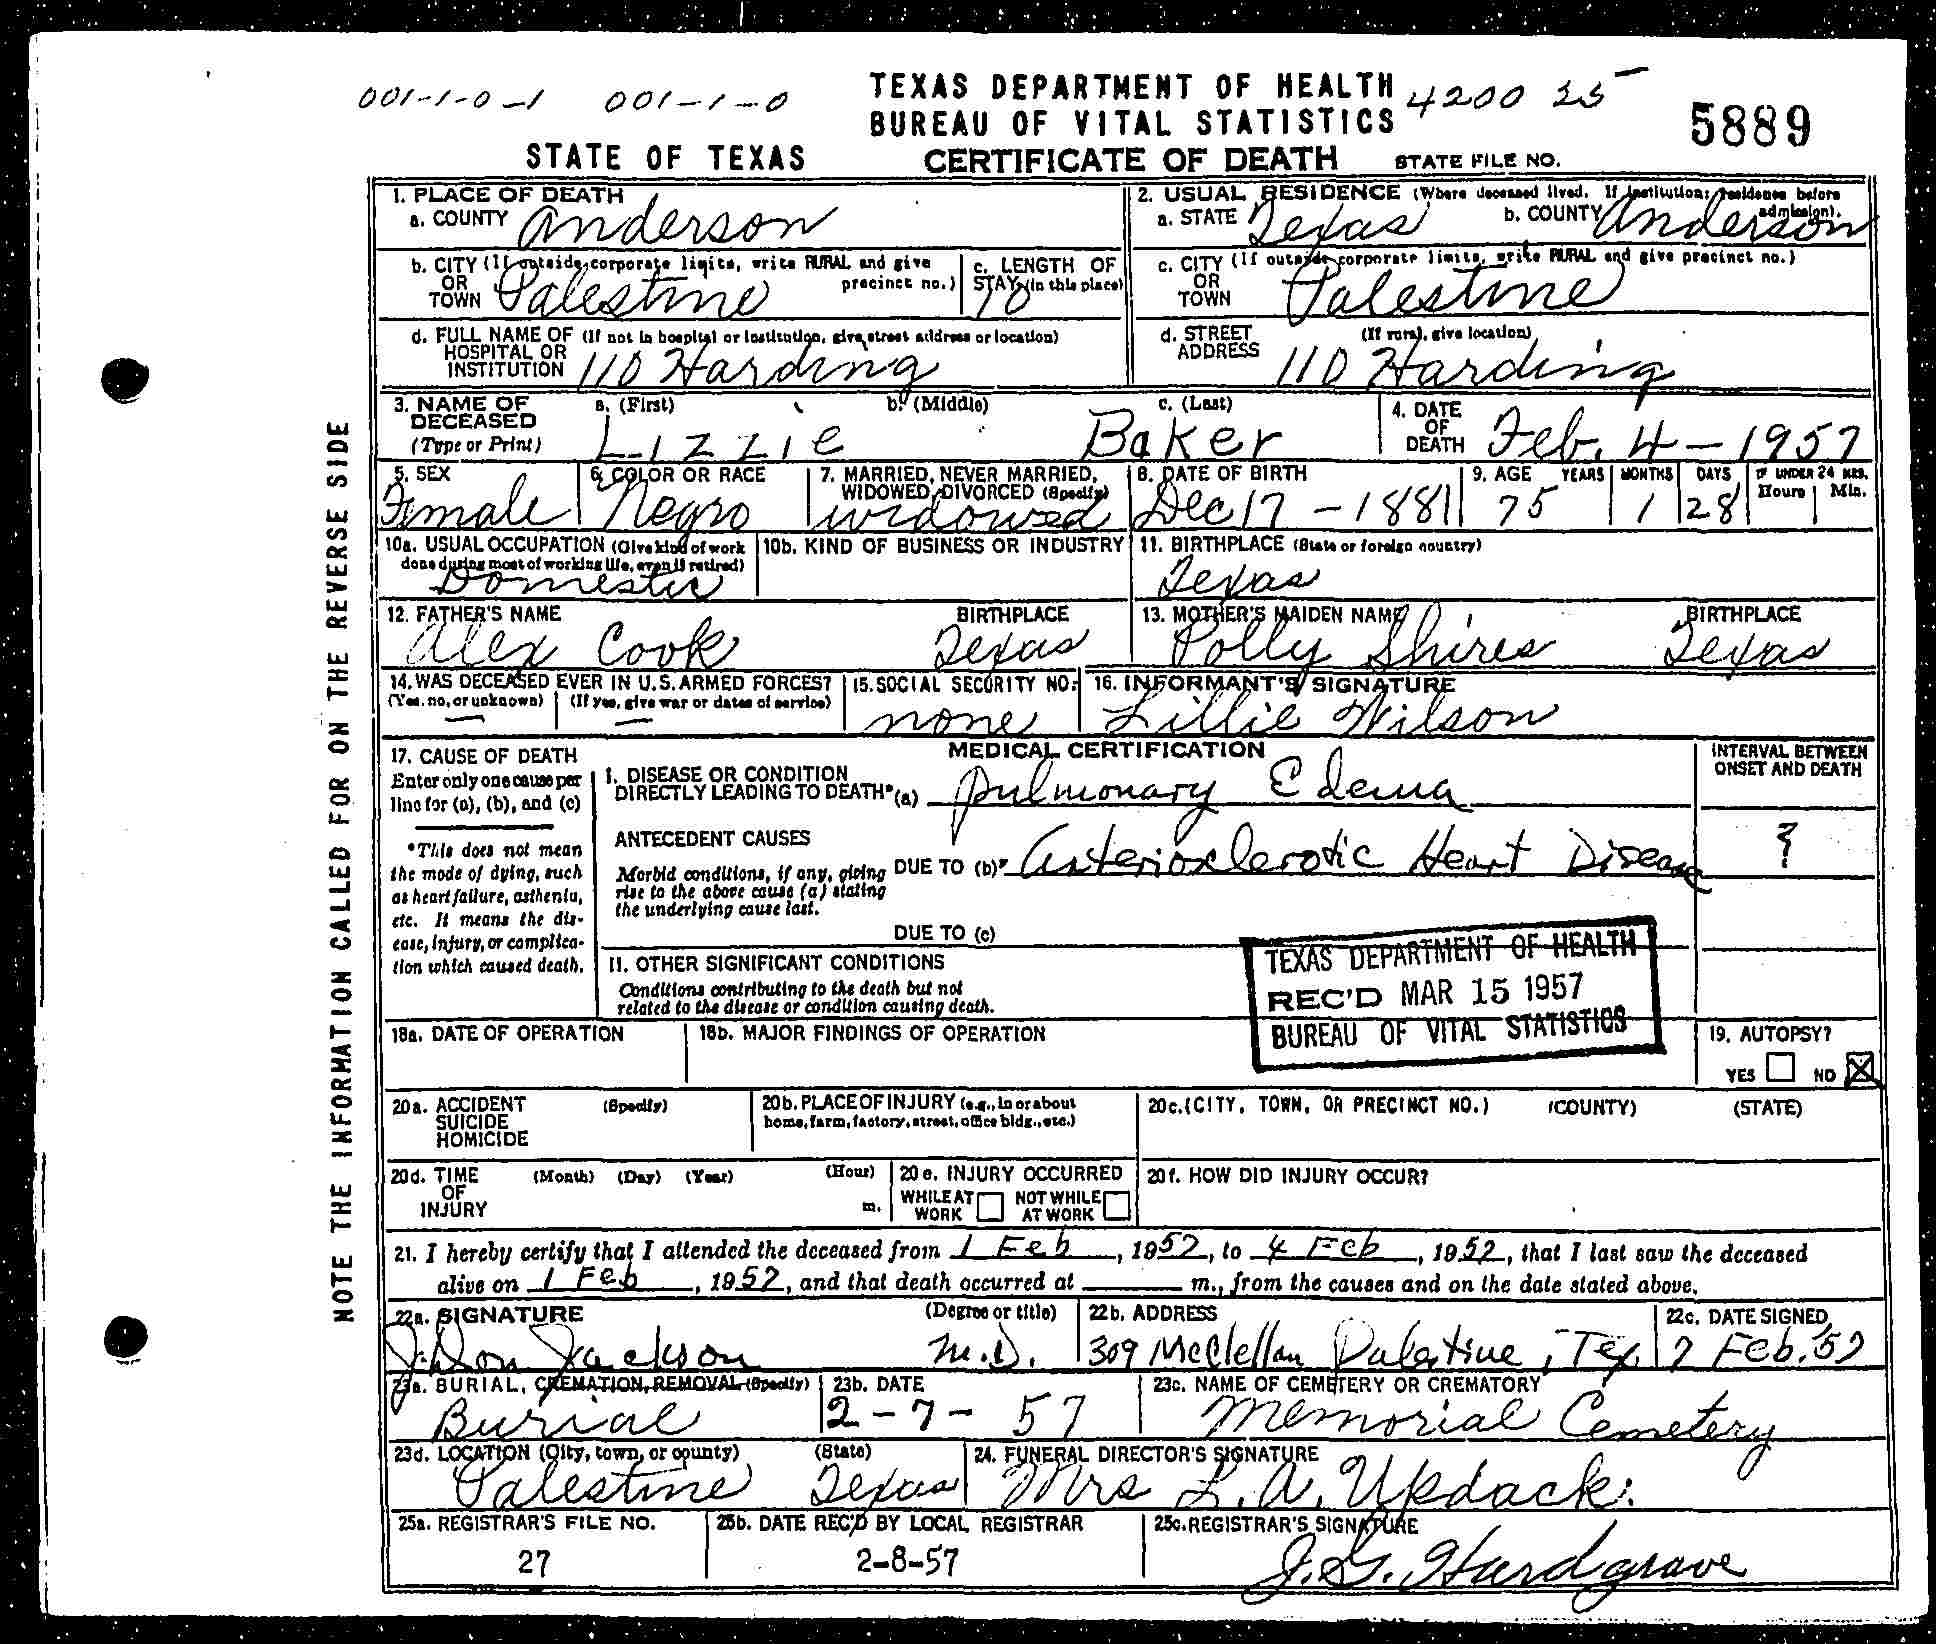 001-1-0-1 001-1-0 TEXAS DEPARTMENT OF HEALTH 4200 25
BUREAU OF VITAL STATISTICS 5889
STATE OF TEXAS CERTIFICATE OF DEATH STATE FILE NO.
NOTE THE INFORMATION CALLED FOR ON THE REVERSE SIDE
1. PLACE OF DEATH
a. COUNTY Anderson
2. USUAL RESIDENCE (Where deceased lived. If institution: residence before admission).
a. STATE Texas b. COUNTY Anderson
b. CITY (If outside corporate limits, write RURAL and give precinct no.)
OR
TOWN Palestine
c. LENGTH OF
STAY (in this place)
70
c. CITY (If outside corporate limits, write RURAL and give precinct no.)
OR
TOWN Palestine
d. FULL NAME OF (If not in hospital or institution, give street address or location)
HOSPITAL OR
INSTITUTION 110 Harding
d. STREET (If rural, give location)
ADDRESS 110 Harding
3. NAME OF a. (First) b. (Middle) c. (Last)
DECEASED
(Type or Print) Lizzie Baker
4. DATE
OF
DEATH Feb. 4-1957
5. SEX
Female
6. COLOR OR RACE
Negro
7. MARRIED, NEVER MARRIED,
WIDOWED, DIVORCED (Specify)
widowed
8. DATE OF BIRTH
Dec 17-1881
9. AGE YEARS MONTHS DAYS IF UNDER 24 HRS.
Hours Min.
75 1 28
10a. USUAL OCCUPATION (Give kind of work
done during most of working life, even if retired)
Domestic
10b. KIND OF BUSINESS OR INDUSTRY
11. BIRTHPLACE (State or foreign country)
Texas
12. FATHER'S NAME BIRTHPLACE
Alex Cook Texas
13. MOTHER'S MAIDEN NAME BIRTHPLACE
Polly Shires Texas
14. WAS DECEASED EVER IN U.S. ARMED FORCES?
(Yes, no, or unknown) (If yes, give war or dates of service)
— —
15. SOCIAL SECURITY NO.
none
16. INFORMANT'S SIGNATURE
Lillie Wilson
17. CAUSE OF DEATH
Enter only one cause per
line for (a), (b), and (c)
*This does not mean
the mode of dying, such
as heart failure, asthenia,
etc. It means the dis-
ease, injury, or complica-
tion which caused death.
MEDICAL CERTIFICATION
INTERVAL BETWEEN
ONSET AND DEATH
I. DISEASE OR CONDITION
DIRECTLY LEADING TO DEATH* (a) Pulmonary Edema
ANTECEDENT CAUSES
Morbid conditions, if any, giving
rise to the above cause (a) stating
the underlying cause last.
DUE TO (b) Arteriosclerotic Heart Disease ?
DUE TO (c)
II. OTHER SIGNIFICANT CONDITIONS
Conditions contributing to the death but not
related to the disease or condition causing death.
TEXAS DEPARTMENT OF HEALTH
REC'D MAR 15 1957
BUREAU OF VITAL STATISTICS
18a. DATE OF OPERATION 18b. MAJOR FINDINGS OF OPERATION
19. AUTOPSY?
YES NO X
20a. ACCIDENT (Specify)
SUICIDE
HOMICIDE
20b. PLACE OF INJURY (e.g., in or about
home, farm, factory, street, office bldg., etc.)
20c. (CITY, TOWN, OR PRECINCT NO.) (COUNTY) (STATE)
20d. TIME (Month) (Day) (Year) (Hour)
OF
INJURY m.
20e. INJURY OCCURRED
WHILE AT WORK NOT WHILE AT WORK
20f. HOW DID INJURY OCCUR?
21. I hereby certify that I attended the deceased from 1 Feb, 1957, to 4 Feb, 1957, that I last saw the deceased
alive on 1 Feb, 1957, and that death occurred at m., from the causes and on the date stated above.
22a. SIGNATURE (Degree or title)
J. Don Jackson M.D.
22b. ADDRESS
309 McClellan Palestine, Tex.
22c. DATE SIGNED
7 Feb. 57
23a. BURIAL, CREMATION, REMOVAL (Specify)
Burial
23b. DATE
2-7-57
23c. NAME OF CEMETERY OR CREMATORY
Memorial Cemetery
23d. LOCATION (City, town, or county) (State)
Palestine Texas
24. FUNERAL DIRECTOR'S SIGNATURE
Mrs L. A. Updack.
25a. REGISTRAR'S FILE NO.
27
25b. DATE REC'D BY LOCAL REGISTRAR
2-8-57
25c. REGISTRAR'S SIGNATURE
J. G. Hardgrave